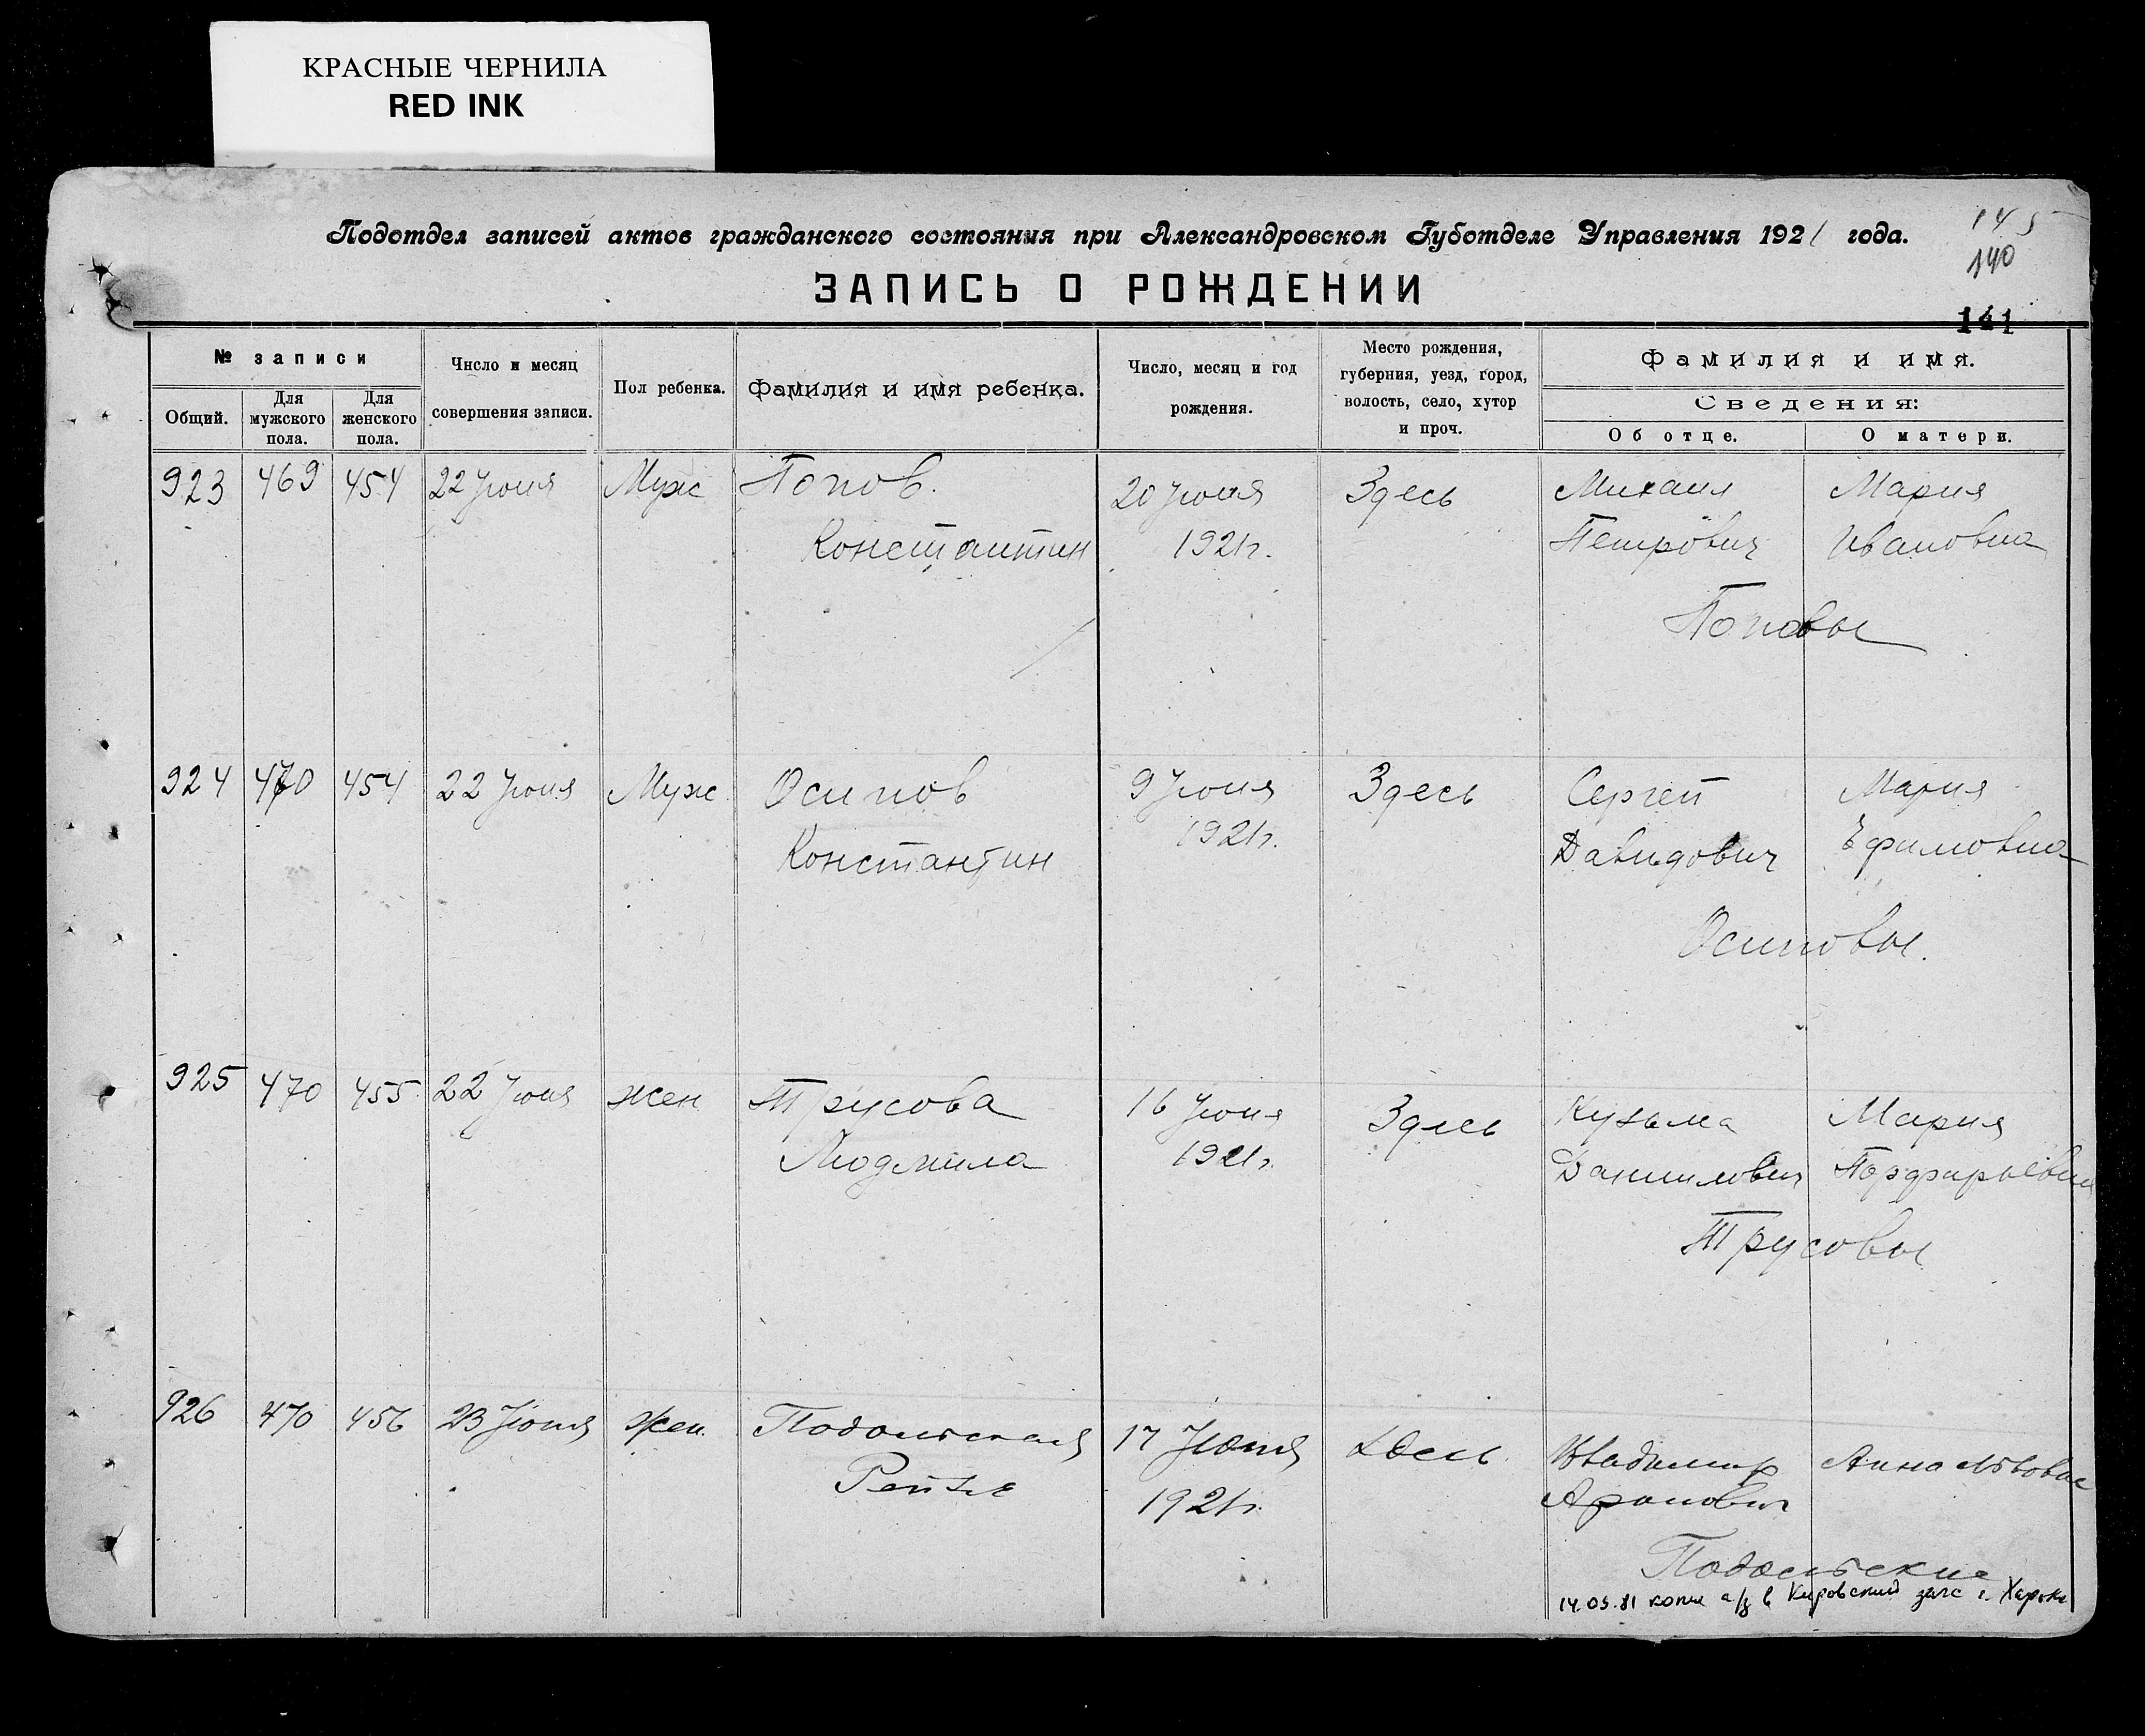 КРАСНЫЕ ЧЕРНИЛА
RED INK
Подотдел записей актов гражданского состояния при Александровском Губотделе Управления 1921 года.
145
140
141
ЗАПИСЬ О РОЖДЕНИИ
№ записи
Общий.
Для мужского пола.
Для женского пола.
Число и месяц совершения записи.
Пол ребенка.
Фамилия и имя ребенка.
Число, месяц и год рождения.
Место рождения, губерния, уезд, город, волость, село, хутор и проч.
Фамилия и имя.
Сведения:
Об отце.
О матери.
923 469 454 22 Июня Муж Попов. 20 Июня Здесь Михаил Мария
Константин 1921 г. Петрович Ивановна
Поповы
924 470 454 22 Июня Муж Осипов 9 Июня Здесь Сергей Мария
Константин 1921 г. Давидович Ефимовна
Осиповы.
925 470 455 22 Июня жен Трусова 16 Июня Здесь Кузьма Мария
Людмила 1921 г. Данилович Порфирьевна
Трусовы
926 470 456 23 Июня жен. Подольская 17 Июня Здесь Владимир Анна Львовна
Рейзя 1921 г. Аронович
Подольские
14.05.81 копия а/з в Кировский загс г. Харьк